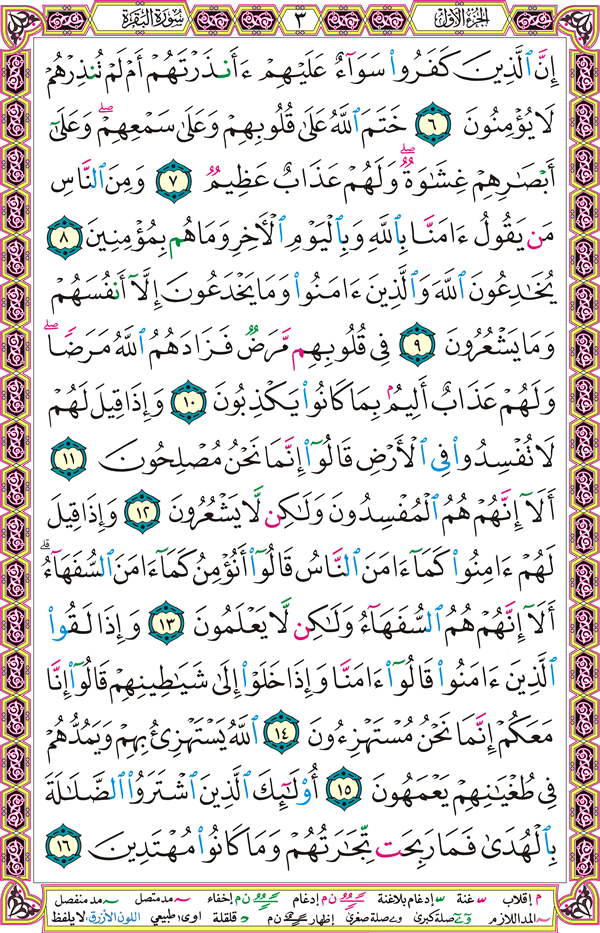 الجزء الأول ٣ سورة البقرة
إِنَّ ٱلَّذِينَ كَفَرُوا۟ سَوَآءٌ عَلَيْهِمْ ءَأَنذَرْتَهُمْ أَمْ لَمْ تُنذِرْهُمْ
لَا يُؤْمِنُونَ ٦ خَتَمَ ٱللَّهُ عَلَىٰ قُلُوبِهِمْ وَعَلَىٰ سَمْعِهِمْ ۖ وَعَلَىٰٓ
أَبْصَـٰرِهِمْ غِشَـٰوَةٌ ۖ وَلَهُمْ عَذَابٌ عَظِيمٌ ٧ وَمِنَ ٱلنَّاسِ
مَن يَقُولُ ءَامَنَّا بِٱللَّهِ وَبِٱلْيَوْمِ ٱلْأَخِرِ وَمَا هُم بِمُؤْمِنِينَ ٨
يُخَـٰدِعُونَ ٱللَّهَ وَٱلَّذِينَ ءَامَنُوا۟ وَمَا يَخْدَعُونَ إِلَّآ أَنفُسَهُمْ
وَمَا يَشْعُرُونَ ٩ فِى قُلُوبِهِم مَّرَضٌ فَزَادَهُمُ ٱللَّهُ مَرَضًا ۖ
وَلَهُمْ عَذَابٌ أَلِيمٌۢ بِمَا كَانُوا۟ يَكْذِبُونَ ١٠ وَإِذَا قِيلَ لَهُمْ
لَا تُفْسِدُوا۟ فِى ٱلْأَرْضِ قَالُوٓا۟ إِنَّمَا نَحْنُ مُصْلِحُونَ ١١
أَلَآ إِنَّهُمْ هُمُ ٱلْمُفْسِدُونَ وَلَـٰكِن لَّا يَشْعُرُونَ ١٢ وَإِذَا قِيلَ
لَهُمْ ءَامِنُوا۟ كَمَآ ءَامَنَ ٱلنَّاسُ قَالُوٓا۟ أَنُؤْمِنُ كَمَآ ءَامَنَ ٱلسُّفَهَآءُ ۗ
أَلَآ إِنَّهُمْ هُمُ ٱلسُّفَهَآءُ وَلَـٰكِن لَّا يَعْلَمُونَ ١٣ وَإِذَا لَقُوا۟
ٱلَّذِينَ ءَامَنُوا۟ قَالُوٓا۟ ءَامَنَّا وَإِذَا خَلَوْا۟ إِلَىٰ شَيَـٰطِينِهِمْ قَالُوٓا۟ إِنَّا
مَعَكُمْ إِنَّمَا نَحْنُ مُسْتَهْزِءُونَ ١٤ ٱللَّهُ يَسْتَهْزِئُ بِهِمْ وَيَمُدُّهُمْ
فِى طُغْيَـٰنِهِمْ يَعْمَهُونَ ١٥ أُو۟لَـٰٓئِكَ ٱلَّذِينَ ٱشْتَرَوُا۟ ٱلضَّلَـٰلَةَ
بِٱلْهُدَىٰ فَمَا رَبِحَت تِّجَـٰرَتُهُمْ وَمَا كَانُوا۟ مُهْتَدِينَ ١٦
م إقلاب غنة إدغام بلاغنة ن م إدغام ن م إخفاء مد متصل مد منفصل
المد اللازم صلة كبرى صلة صغرى إظهار ن م قلقلة اوى: طبيعي اللون الأزرق: لا يلفظ